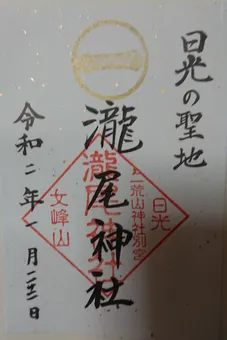 日光の聖地
一
瀧尾神社
令和二年一月二三日
日光
二荒山神社別宮
瀧尾神社
女峰山